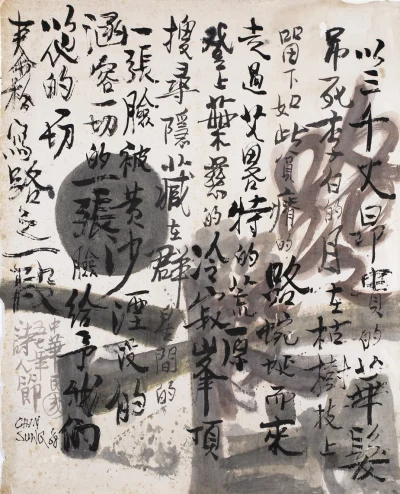 以三千丈昂貴的華髮
吊死李白的月在枯樹枝上
留下如此貧瘠的路蜿蜒而來
走過艾略特的荒原
登上葉慈的冷寂峯頂
搜尋隱藏在群星間的
一張臉被黃沙湮沒的
涵容一切的一張臉給予我們
以他的一切
寫路之一段
中華民國
五七年
詩人節
CHUN
SUNG 68